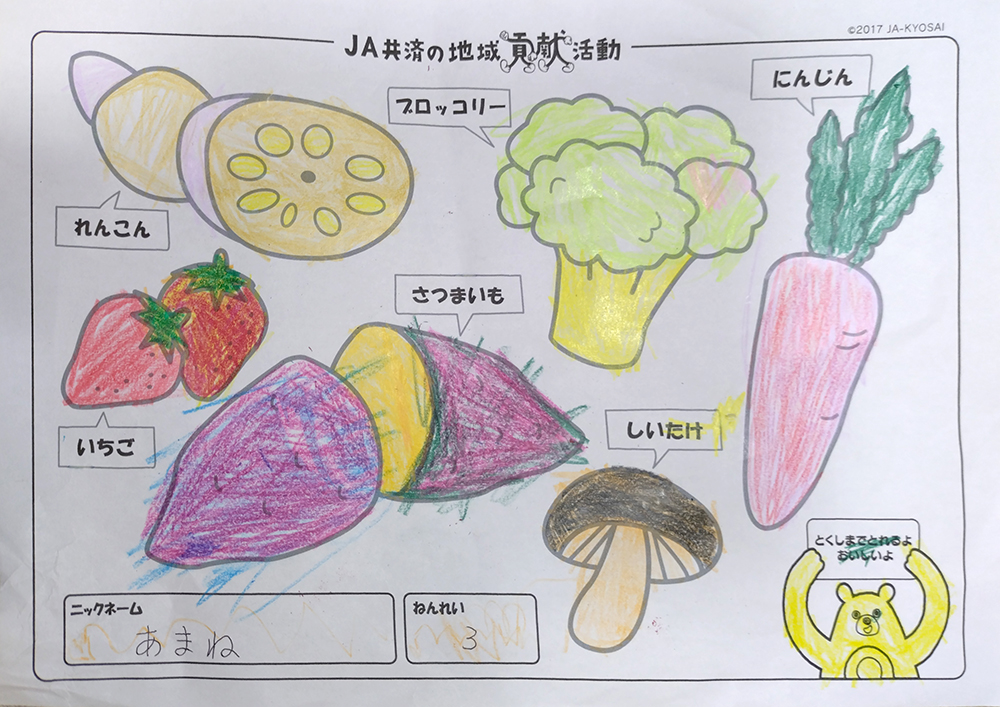 ©2017 JA-KYOSAI
JA共済の地域貢献活動
にんじん
ブロッコリー
れんこん
さつまいも
いちご
しいたけ
とくしまでとれるよ
おいしいよ
ニックネーム
あまね
ねんれい
3